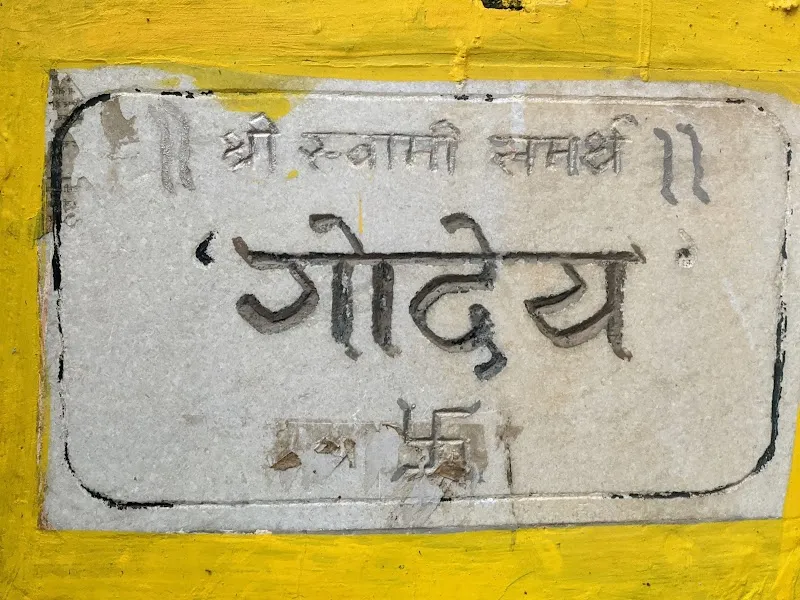 ॥ श्री स्वामी समर्थ ॥
'गोदेय'
卐